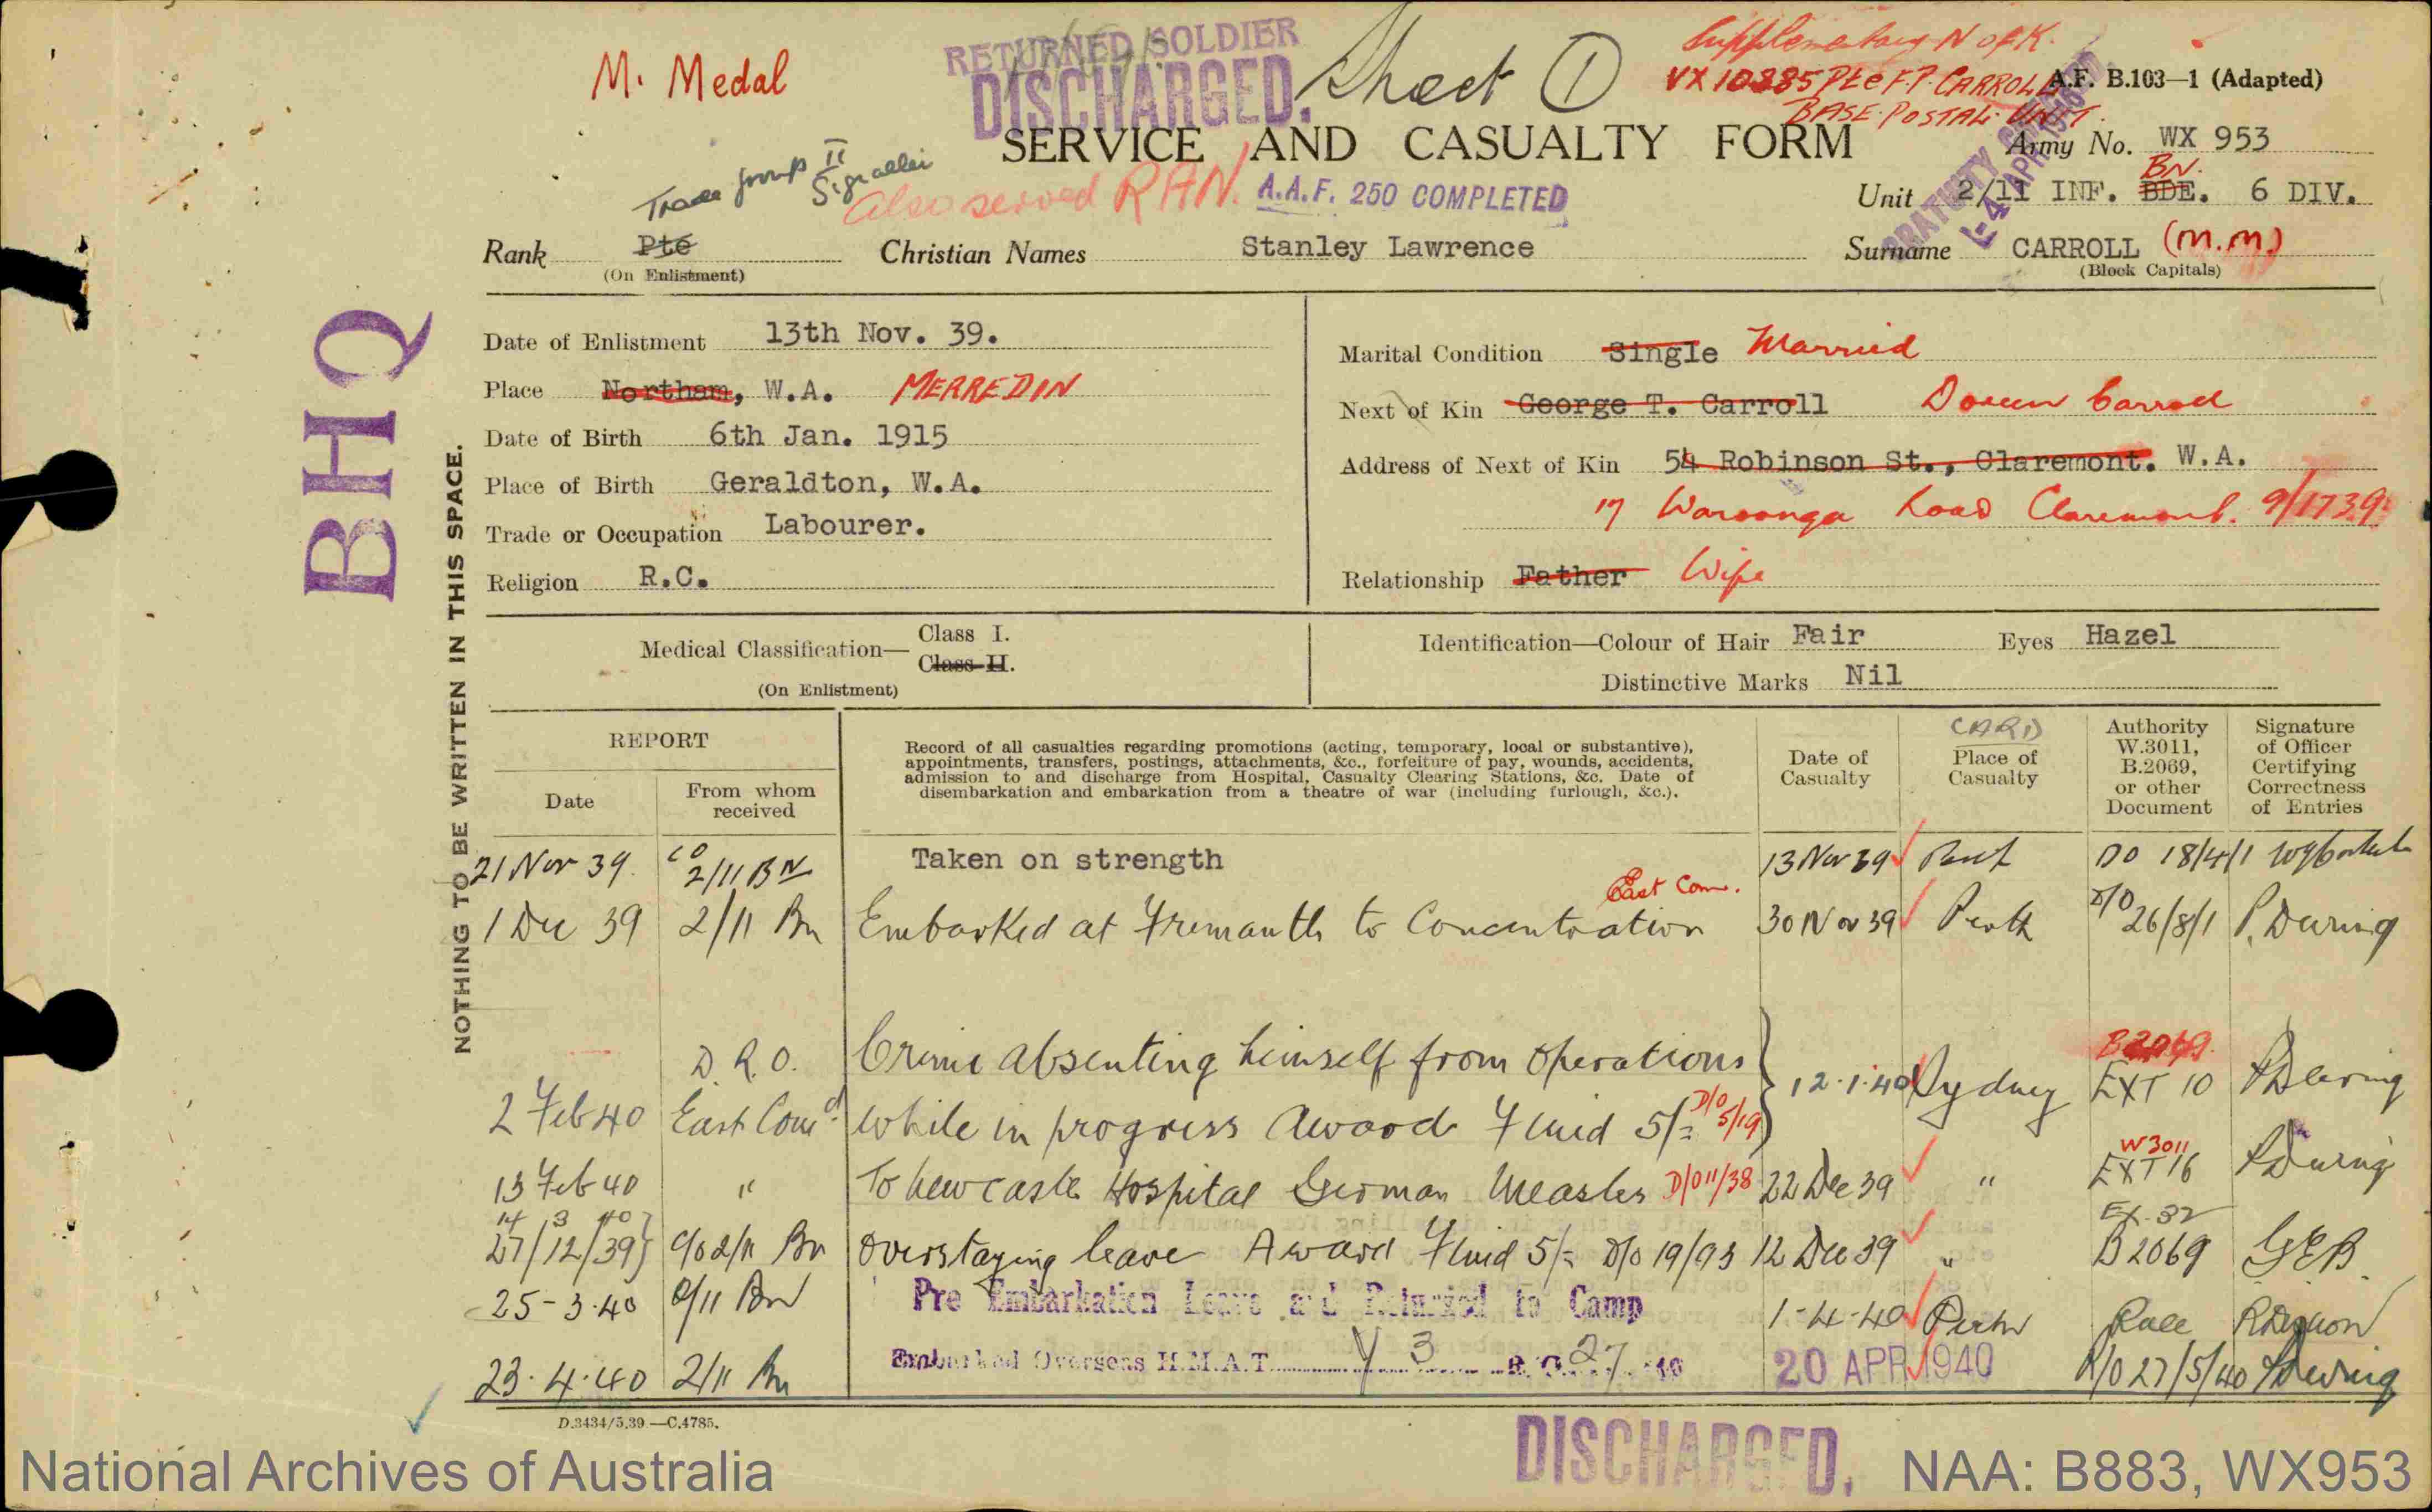 M. Medal
RETURNED SOLDIER
DISCHARGED.
Sheet 1
Supplementary N of K.
VX 10885 Pte F.P. CARROLL
BASE POSTAL UNIT.
A.F. B.103—1 (Adapted)
SERVICE AND CASUALTY FORM
Army No. WX 953
Trade group II
Signaller
Also served RAN.
A.A.F. 250 COMPLETED
BN.
Unit 2/11 INF. BDE. 6 DIV.
Rank Pte
(On Enlistment)
Christian Names Stanley Lawrence
Surname CARROLL (M.M.)
(Block Capitals)
GRATUITY
-4 APR
BHQ
NOTHING TO BE WRITTEN IN THIS SPACE.
Date of Enlistment 13th Nov. 39.
Place Northam, W.A. MERREDIN
Date of Birth 6th Jan. 1915
Place of Birth Geraldton, W.A.
Trade or Occupation Labourer.
Religion R.C.
Marital Condition Single Married
Next of Kin George T. Carroll Doreen Carroll
Address of Next of Kin 54 Robinson St., Claremont. W.A.
17 Waroonga Road Claremont. 9/1739
Relationship Father Wife
Medical Classification—
Class I.
Class II.
(On Enlistment)
Identification—Colour of Hair Fair Eyes Hazel
Distinctive Marks Nil
REPORT
Date
From whom received
Record of all casualties regarding promotions (acting, temporary, local or substantive),
appointments, transfers, postings, attachments, &c., forfeiture of pay, wounds, accidents,
admission to and discharge from Hospital, Casualty Clearing Stations, &c. Date of
disembarkation and embarkation from a theatre of war (including furlough, &c.).
Date of Casualty
CARD
Place of Casualty
Authority W.3011, B.2069, or other Document
Signature of Officer Certifying Correctness of Entries
21 Nov 39. CO 2/11 BN Taken on strength 13 Nov 39 Perth DO 18/4/1
East Com.
1 Dec 39 2/11 Bn Embarked at Fremantle to Concentration 30 Nov 39 Perth D/O 26/8/1 P. Dearing
D.R.O. Crime absenting himself from operations B2069
2 Feb 40 East Comd while in progress Award Fined 5/= D/O 5/19 12.1.40 Sydney EXT 10 PDearing
W3011
13 Feb 40 " To Newcastle Hospital German Measles D/O 11/38 22 Dec 39 " EXT 16 PDearing
14 3 40
27/12/39 C/O 2/11 Bn Overstaying leave Award Fined 5/= D/O 19/93 12 Dec 39 " Ex. 32 B2069 GEB
25-3-40 2/11 Bn Pre Embarkation Leave and Returned to Camp 1-4-40 Perth
23.4.40 2/11 Bn Embarked Overseas H.M.A.T. Y 3 R.O. 27 /40 20 APR 1940 R/O 27/5/40 PDearing
D.3434/5.39.—C.4785.
DISCHARGED.
National Archives of Australia
NAA: B883, WX953